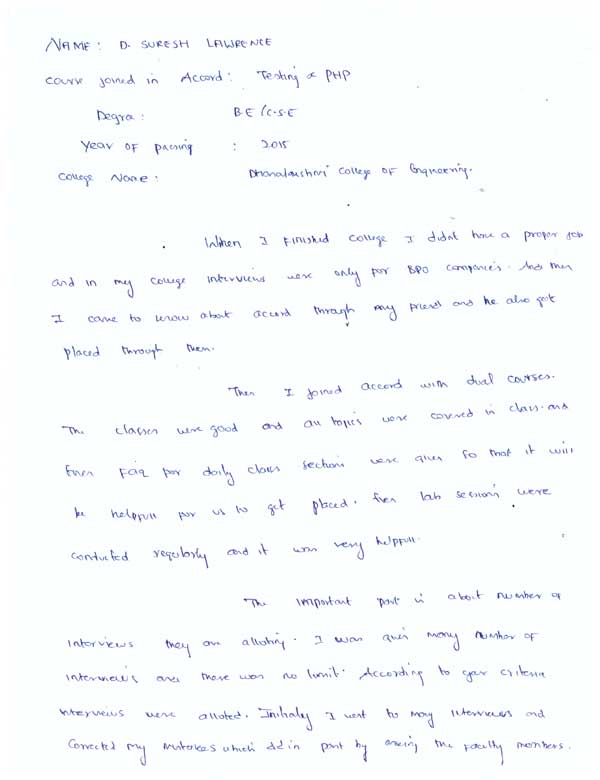 NAME: D. SURESH LAWRENCE
Course joined in Accord: Testing & PHP
Degra: B.E/C.S.E
Year of passing : 2015
College Name: Dhanalakshmi College of Engineering.
When I finished college I didnt have a proper job
and in my college interviews were only for BPO companies. And then
I came to know about accord through my friend and he also got
placed through them.
Then I joined accord with dual courses.
The classes were good and all topics were covered in class. and
Even FAQ for daily class section were given so that it will
be helpfull for us to get placed. Even lab sessions were
conducted regularly and it was very helpfull.
The important part is about number of
interviews they are alloting. I was given many number of
interviews and there was no limit. According to criteria
interviews were alloted. Initialy I went to many interviews and
Corrected my mistakes which did in past by the faculty members.